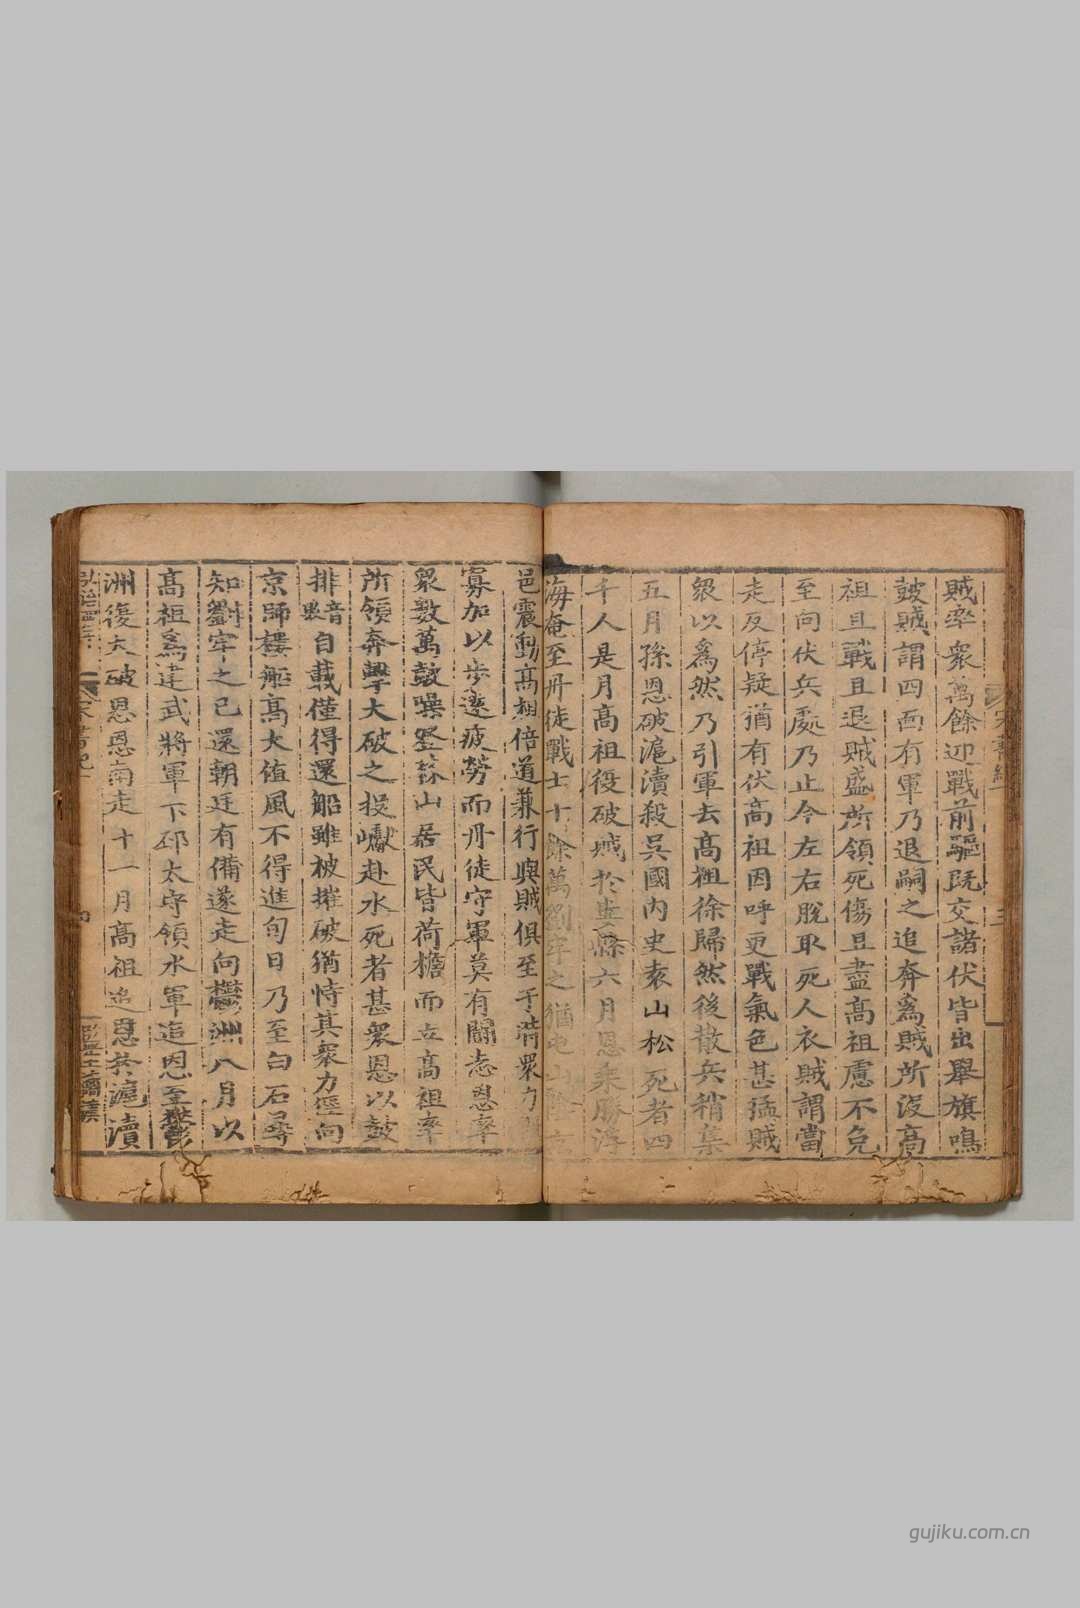 賊率衆萬餘迎戰前驅既交諸伏皆出舉旗鳴
皷賊謂四面有軍乃退嗣之追奔爲賊所沒高
祖且戰且退賊盛所領死傷且盡高祖慮不免
至向伏兵處乃止令左右脫取死人衣賊謂當
走反停疑猶有伏高祖因呼更戰氣色甚猛賊
衆以爲然乃引軍去高祖徐歸然後散兵稍集
五月孫恩破滬瀆殺吳國内史袁山松死者四
千人是月高祖復破賊於婁縣六月恩乗勝浮
海奄至丹徒戰士十餘萬劉牢之猶屯山陰
邑震動高祖倍道兼行與賊俱至于時衆力
寡加以步遠疲勞而丹徒守軍莫有鬭志恩率
衆數萬鼓噪登蒜山居民皆荷檐而立高祖率
所領奔擊大破之投巘赴水死者甚衆恩以鼓
排音敗自載僅得還船雖被摧破猶恃其衆力徑向
京師樓船高大值風不得進旬日乃至白石尋
知劉牢之已還朝廷有備遂走向鬱洲八月以
高祖爲建武將軍下邳太守領水軍追恩至鬱
洲復大破恩恩南走十一月高祖追恩於滬瀆
宋書紀一
監生
gujiku.com.cn